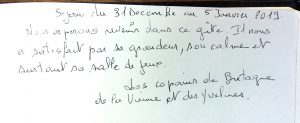 Séjour du 31 Décembre au 5 Janvier 2019.
Nous espérons revenir dans ce gîte. Il nous
a satisfait par sa grandeur, son calme et
surtout sa salle de jeux.
Les copains de Bretagne
de la Vienne et des Yvelines.